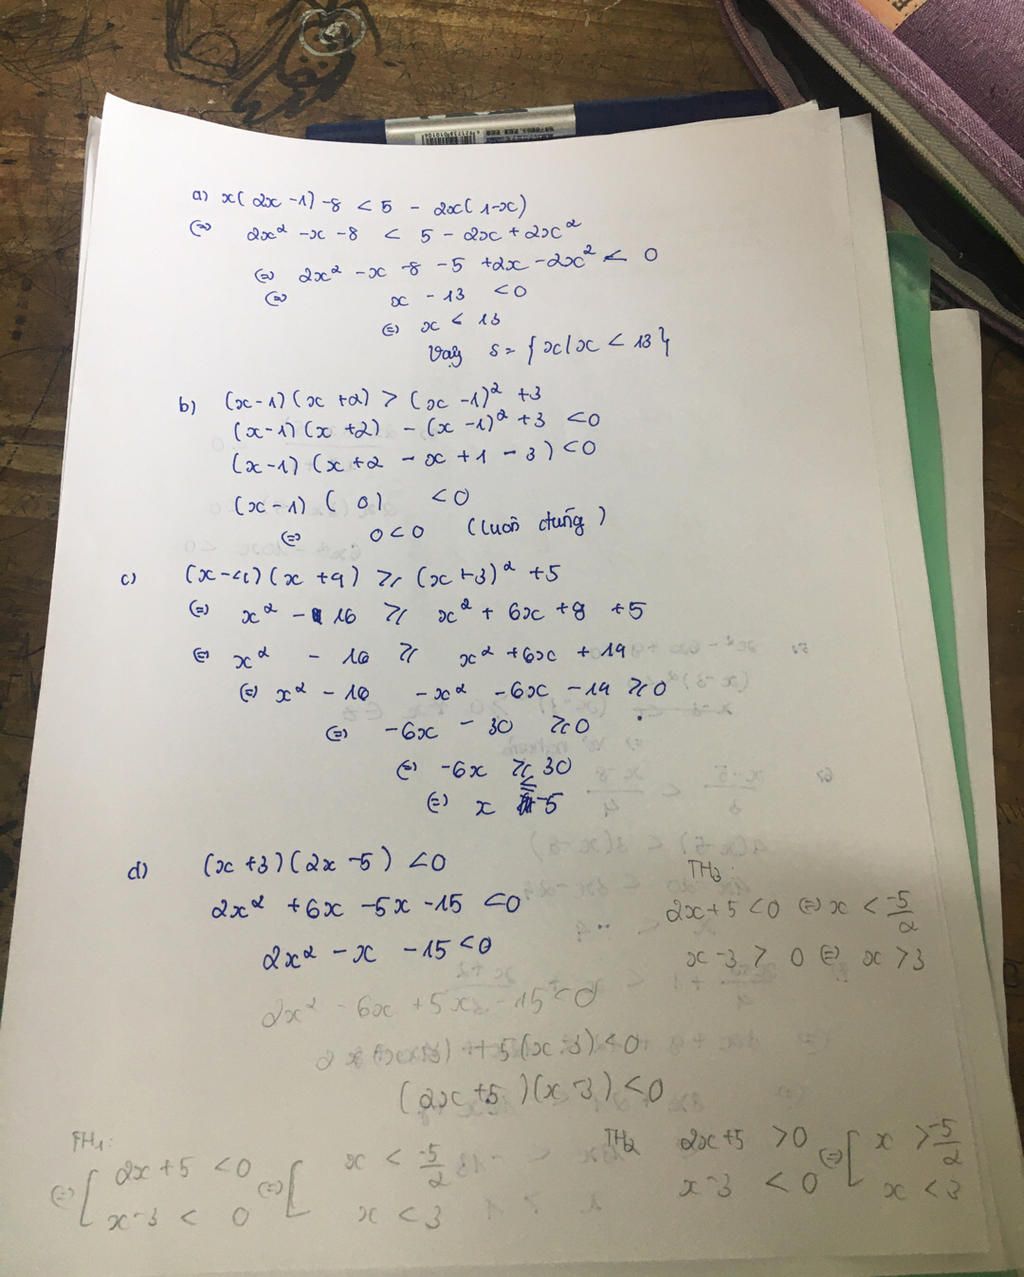 a) x(2x-1)-8 < 5 - 2x(1-x)
(=) 2x² -x -8 < 5 - 2x + 2x²
(=) 2x² -x -8 -5 +2x -2x² < 0
(=) x - 13 < 0
(=) x < 13
Vay S = {x/x < 13}
b) (x-1)(x+2) > (x-1)² +3
(x-1)(x+2) - (x-1)² +3 <0
(x-1)(x+2 -x +1 -3) <0
(x-1)( 0) <0
(=) 0<0 (luôn đúng)
c) (x-4)(x+4) ≥ (x+3)² +5
(=) x² - 16 ≥ x² + 6x +9 +5
(=) x² - 16 ≥ x² +6x + 14
(=) x² - 16 -x² -6x -14 ≥0
(=) -6x - 30 ≥0
(=) -6x ≥ 30
(=) x ≤ -5
d) (x+3)(2x-5) <0
2x² +6x -5x -15 <0
2x² -x -15 <0
2x² -6x +5x -15 <0
+5(x-3)<0
(2x+5)(x-3)<0
TH1:
(=) [ 2x+5 <0 (=) [ x < -5/2
x-3 < 0 x < 3
TH2 2x+5 >0 (=) [ x > -5/2
x-3 < 0 x < 3
TH3:
2x+5 <0 (=) x < -5/2
x-3 > 0 (=) x > 3